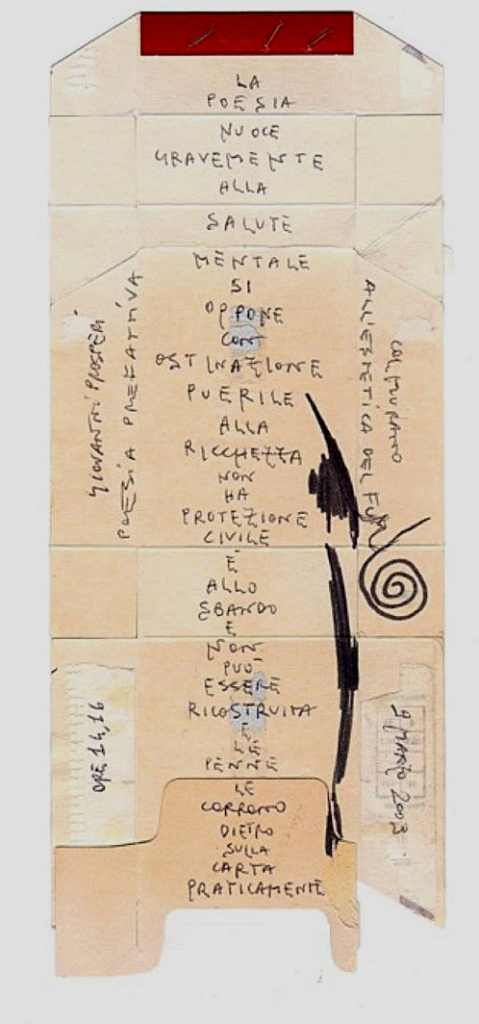 LA
POESIA
NUOCE
GRAVEMENTE
ALLA
SALUTE
MENTALE
SI
OPPONE
CON
OSTINAZIONE
PUERILE
ALLA
RICCHEZZA
NON
HA
PROTEZIONE
CIVILE
È
ALLO
SBANDO
E
NON
PUÒ
ESSERE
RICOSTRUITA
E
LE
PENNE
LE
CORRONO
DIETRO
SULLA
CARTA
PRATICAMENTE
GIOVANNI PROSPERI
POESIA PREFATTIVA
COLMURANO
ALL'ESTETICA DEL
ORE 14,16
9 MARZO 2003